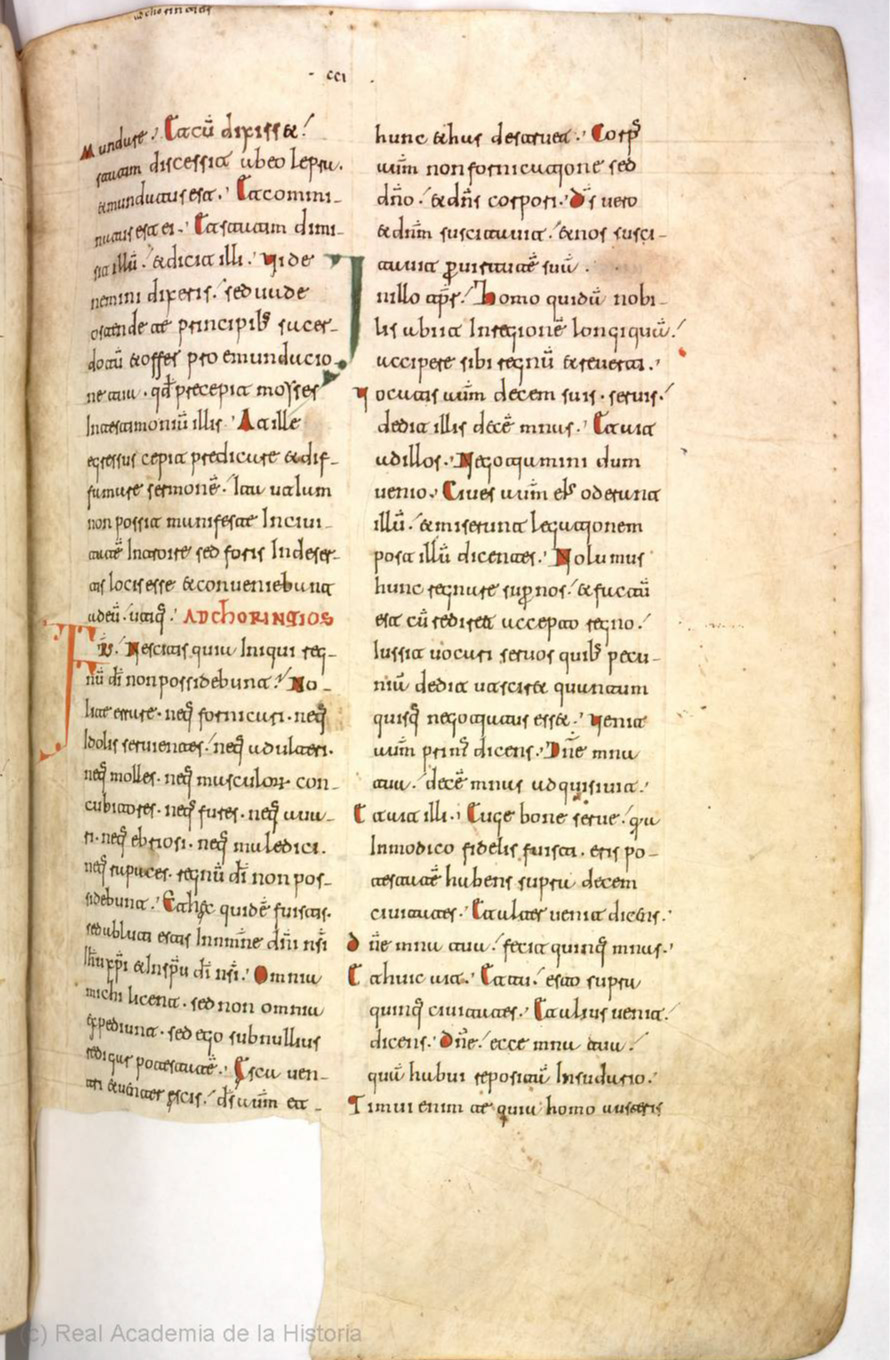 cci
Mundare. Et cū dixisset
statim discessit ab eo lepra.
& mundatus est. Et comini-
natus est ei. Et statim dimi-
sit illū. & dicit illi. Vide
nemini dixeris. sed uade
ostende te principib; sacer-
dotū & offer pro emundatio-
ne tua. qd precepit moyses
In testimoniū illis. At ille
egressus cepit predicare & dif-
famare sermonē. Ita ut iam
non possit manifeste In ciui-
tatē Introire sed foris In deser-
tis locis esse & conueniebant
ad eū. undiq̄. AD chORINTIOS
Frs. Nescitis quia Iniqui reg-
nū dī non possidebunt. No-
lite errare. neq̄ fornicari. neq̄
Idolis seruientes. neq̄ adulteri.
neq̄ molles. neq̄ masculorū con-
cubitores. neq̄ fures. neq̄ aua-
ri. neq̄ ebriosi. neq̄ maledici.
neq̄ rapaces. regnū dī non pos-
sidebunt. Et hęc quidē fuistis.
sed abluti estis In nmīne dnī nsī
Ihū xpī & In spū dī nsī. Omnia
michi licent. sed non omnia
expediunt. sed ego sub nullius
redigar potestatē. Esca uen-
tri & uenter escis. ds aūm et
hunc & has destruet. Corp̄
aūm non fornicationi sed
dnō. & dns corpori. Ds uero
& dnm suscitauit. & nos susci-
tauit p uirtutē suā.
In illo tp̄r. Homo quidā nobi-
lis abiit In regionē longiquā.
accipere sibi regnū & reuerti.
Vocatis aūm decem suis. seruis.
dedit illis decē mnas. Et ait
ad illos. Negotiamini dum
uenio. Ciues aūm ei oderunt
illū. & miserunt legationem
post illū dicentes. Nolumus
hunc regnare sup nos. & factū
est cū rediret accepto regno.
Iussit uocari seruos quib; pecu-
niā dedit ut sciret quantum
quisq̄ negotiatus esset. Venit
aūm prim; dicens. Dnē mna
tua. decē mnas adquisiuit.
Et ait illi. Euge bone serue. qa
In modico fidelis fuisti. eris po-
testatē habens supra decem
ciuitates. Et alter uenit dicēns.
dnē mna tua. fecit quinq̄ mnas.
Et huic ait. Et tu. esto supra
quinq̄ ciuitates. Et alius uenit.
dicens. Dnē. ecce mna tua.
quā habui repositā In sudario.
Timui enim te quia homo austeris
(c) Real Academia de la Historia